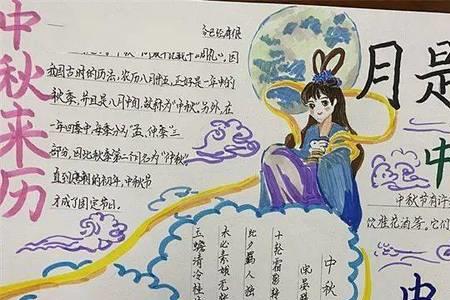 中秋来历
已经有很
因
我国古时的历法,农历八月十五,正好是一年中的
秋季,并且是八月中间,故称为"中秋"另外,在
一年四季中,每季分为"孟、仲、季"三
部分,因此秋季第二个月名为"仲秋"
直到唐朝的初年,中秋节
才成了固定节日。
月是
中
中秋节有许
饮桂花酒等,它们
中秋
宋晏殊
十轮霜影转
此夕羁人独
未必素娥无怅
玉蟾清冷桂